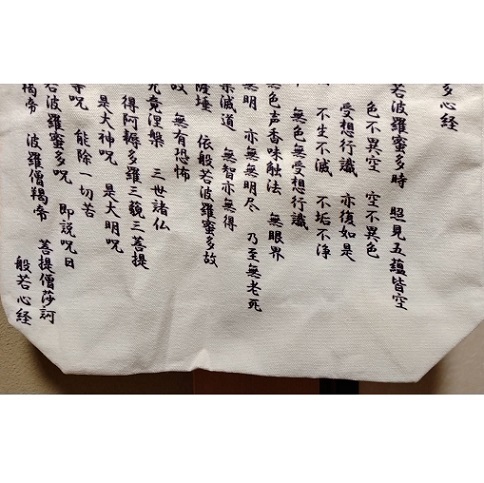 多心経
若波羅蜜多時　照見五蘊皆空
色不異空　空不異色
受想行識　亦復如是
不生不滅　不垢不浄
無色無受想行識
無色声香味触法　無眼界
無明　亦無無明尽　乃至無老死
集滅道　無智亦無得
薩埵　依般若波羅蜜多故
故　無有恐怖
究竟涅槃　三世諸仏
得阿耨多羅三藐三菩提
是大神呪　是大明呪
等呪　能除一切苦
若波羅蜜多呪　即説呪日
羯帝　波羅僧羯帝　菩提僧莎訶
般若心経